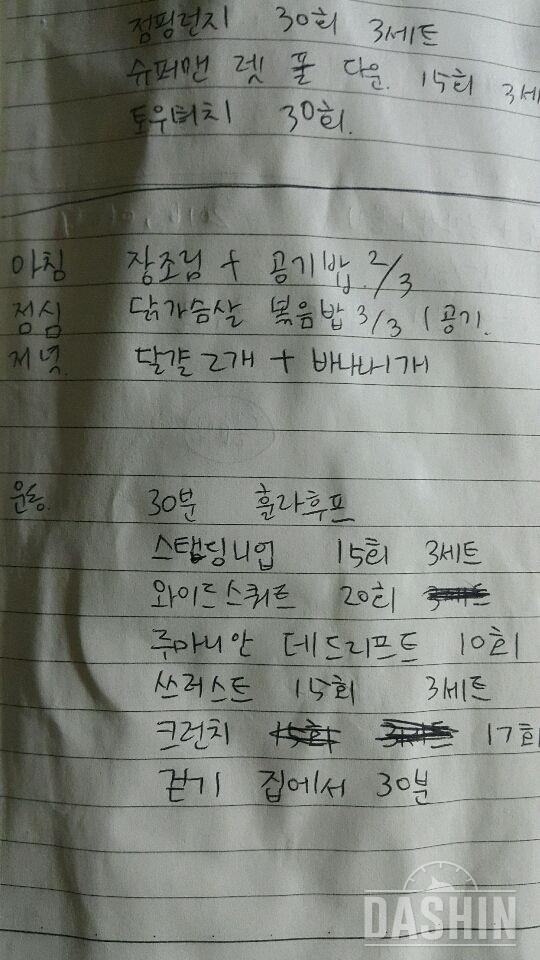 점핑런지 30회 3세트
슈퍼맨 렛 풀 다운. 15회 3세
토우터치 30회.
아침 장조림 + 공기밥 2/3
점심 닭가슴살 볶음밥 3/3 1공기.
저녁. 달걀 2개 + 바나나1개
운동. 30분 훌라후프
스탠딩니업 15회 3세트
와이드스쿼트 20회
루마니안 데드리프트 10회
쓰러스트 15회 3세트
크런치 17회
걷기 집에서 30분
DASHIN